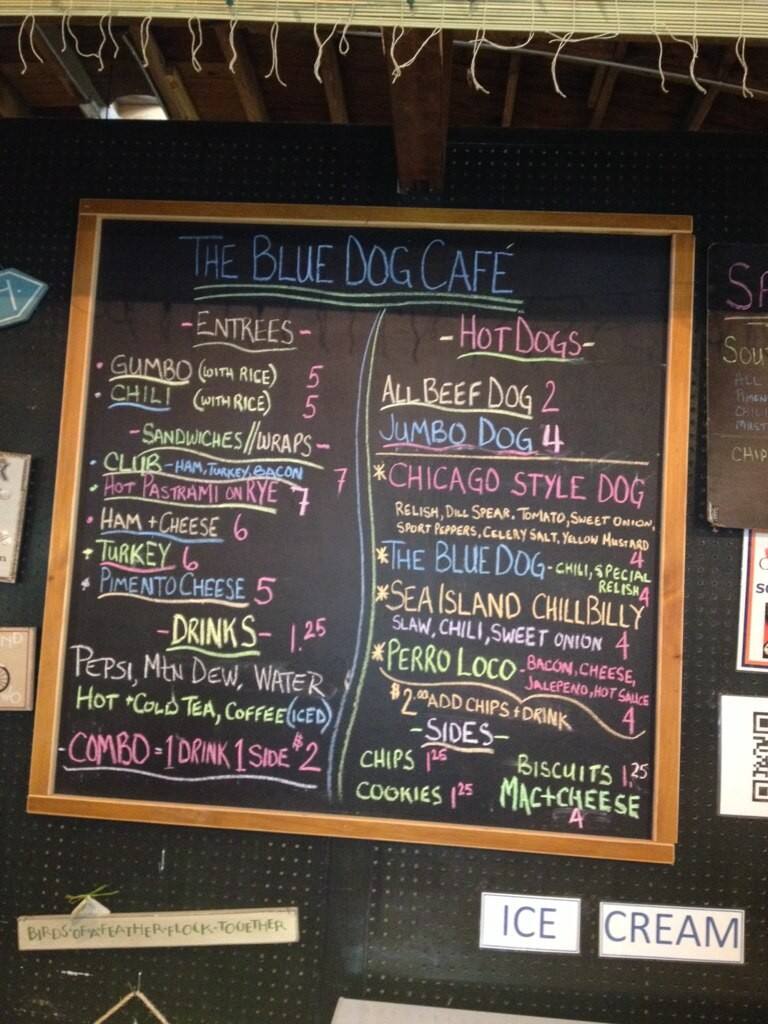 THE BLUE DOG CAFÉ
- ENTREES -
· GUMBO (WITH RICE) 5
· CHILI (WITH RICE) 5
- SANDWICHES//WRAPS -
· CLUB - HAM, TURKEY, BACON 7
· HOT PASTRAMI ON RYE 7
· HAM + CHEESE 6
· TURKEY 6
· PIMENTO CHEESE 5
- DRINKS - 1.25
PEPSI, MTN DEW, WATER
HOT + COLD TEA, COFFEE (ICED)
- COMBO = 1 DRINK 1 SIDE $2
- HOT DOGS -
ALL BEEF DOG 2
JUMBO DOG 4
*CHICAGO STYLE DOG
RELISH, DILL SPEAR, TOMATO, SWEET ONION,
SPORT PEPPERS, CELERY SALT, YELLOW MUSTARD
4
*THE BLUE DOG - CHILI, SPECIAL
RELISH 4
*SEA ISLAND CHILLBILLY
SLAW, CHILI, SWEET ONION 4
*PERRO LOCO - BACON, CHEESE,
JALEPENO, HOT SAUCE
$2.00 ADD CHIPS + DRINK 4
- SIDES -
CHIPS 1.25
BISCUITS 1.25
COOKIES 1.25
MAC + CHEESE
4
SOU
ALL
CHIP
BIRDS·OF·A·FEATHER·FLOCK·TOGETHER
ICE CREAM